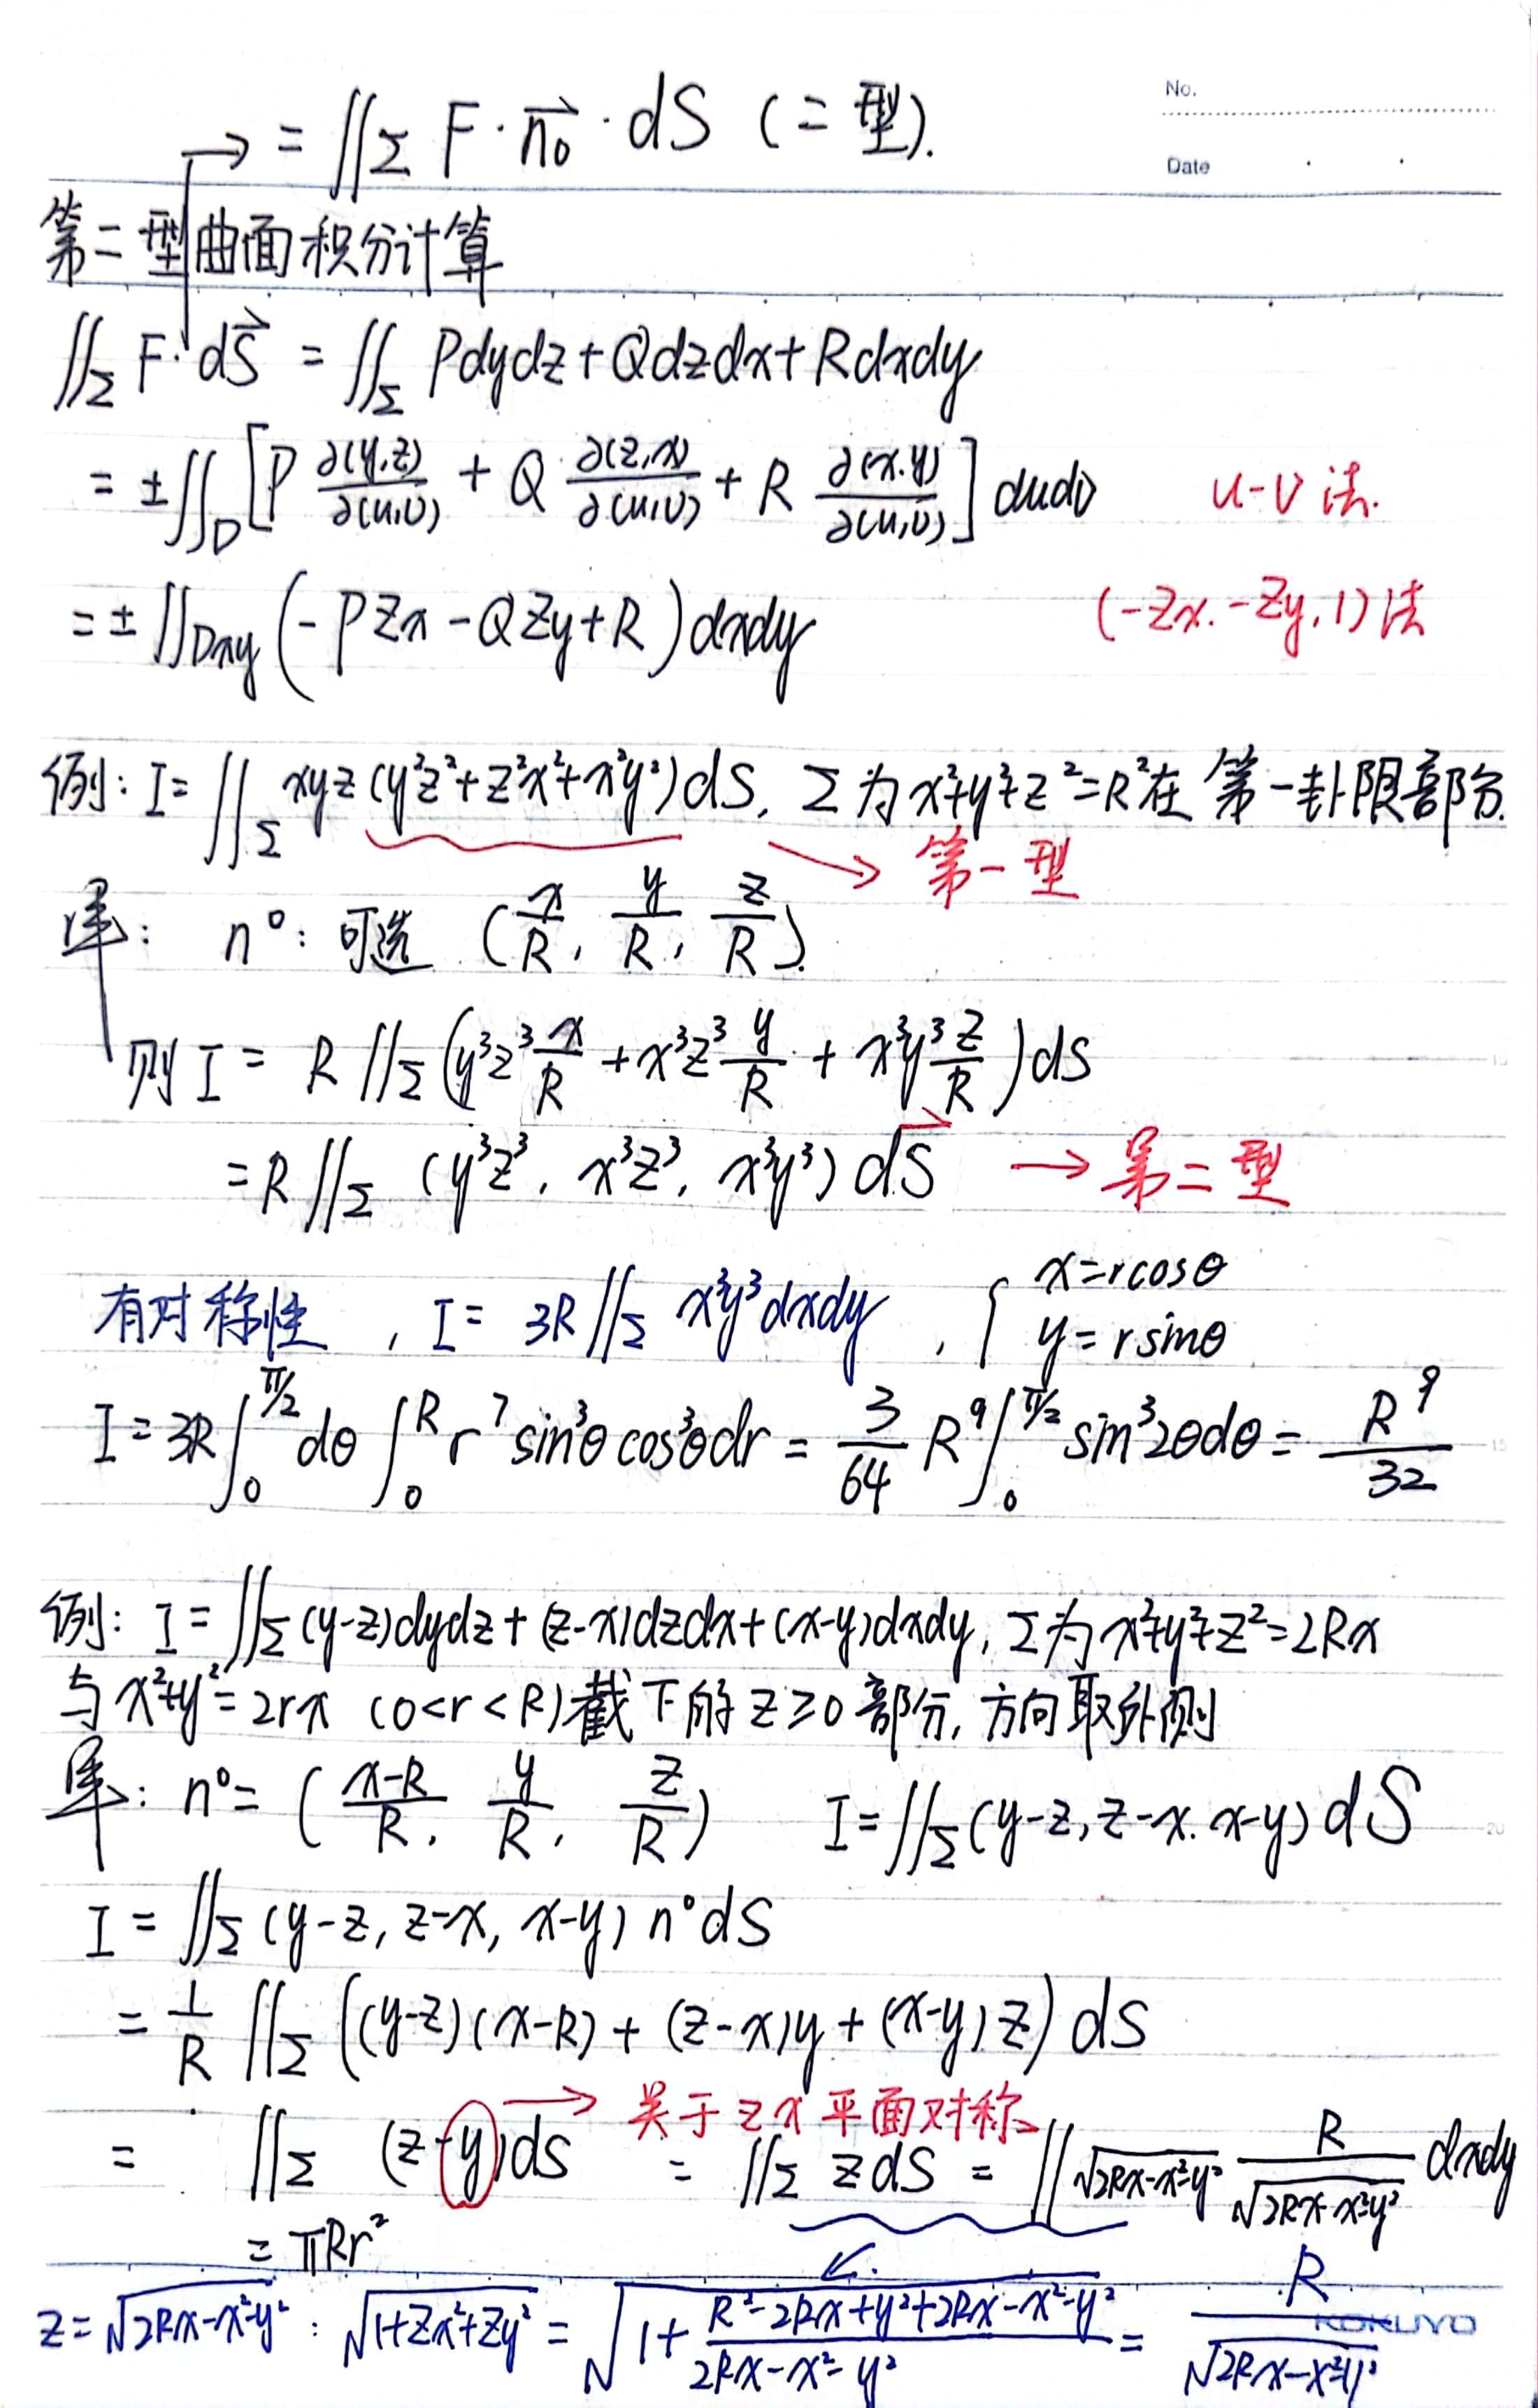 No.
→ = ∬_Σ F·\vec{n_0}·dS (二型).
Date
第二型曲面积分计算
∬_Σ F·d\vec{S} = ∬_Σ Pdydz+Qdzdx+Rdxdy
= ±∬_D [P ∂(y,z)/∂(u,v) + Q ∂(z,x)/∂(u,v) + R ∂(x.y)/∂(u,v)] dudv u-v法.
= ±∬_{Dxy} (-PZx-QZy+R)dxdy (-Zx.-Zy,1)法
例: I=∬_Σ xyz(y²z²+z²x²+x²y²)dS, Σ为x²+y²+z²=R²在第一卦限部分.
→ 第一型
解: n⁰: 可选 (x/R, y/R, z/R).
则 I = R∬_Σ (y³z³ x/R + x³z³ y/R + x³y³ z/R)dS
=R∬_Σ (y³z³, x³z³, x³y³) d\vec{S} → 第二型
有对称性, I= 3R∬_Σ x³y³dxdy, { x=rcosθ
y=rsinθ
I=3R∫_0^{π/2} dθ ∫_0^R r⁷ sin³θcos³θdr = 3/64 R⁹∫_0^{π/2} sin³2θdθ = R⁹/32
例: I=∬_Σ(y-z)dydz+(z-x)dzdx+(x-y)dxdy, Σ为x²+y²+z²=2Rx
与x²+y²=2rx (0<r<R)截下的z≥0部分, 方向取外侧
解: n⁰= ((x-R)/R, y/R, z/R) I=∬_Σ(y-z, z-x. x-y)dS
I=∬_Σ(y-z, z-x, x-y) n⁰dS
= 1/R ∬_Σ ((y-z)(x-R)+(z-x)y+(x-y)z) dS
→ 关于zx平面对称
= ∬_Σ (z-y)dS = ∬_Σ zdS = ∬√(2Rx-x²-y²) R/√(2Rx-x²-y²) dxdy
= πRr²
z=√(2Rx-x²-y²) : √(1+Zx²+Zy²) = √(1+ (R²-2Rx+y²+2Rx-x²-y²)/(2Rx-x²-y²)) = R/√(2Rx-x²-y²)
KOKUYO